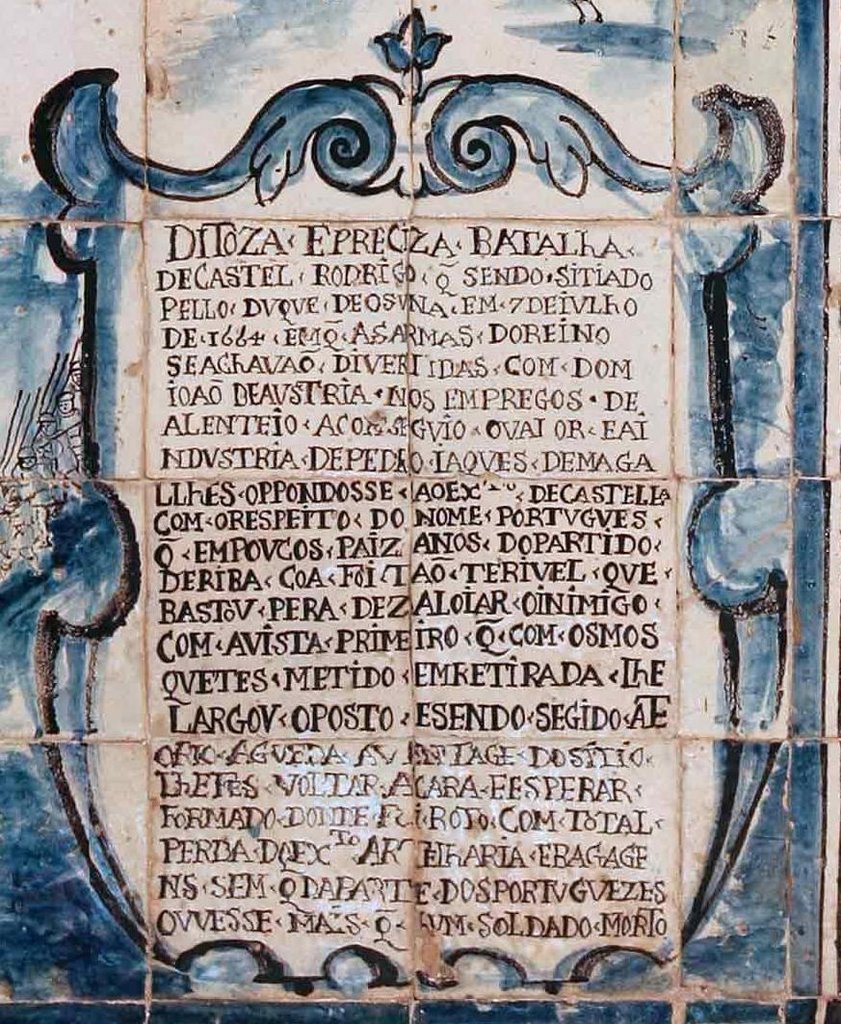 DITOZA‹ EPRECIZA‹ BATALhA‹
DECASTEL‹ RODRIGO‹Q̃ SENDO‹SITIADO
PELLO‹ DVQVE‹DEOSVNA‹EM‹7DEIVLHO
DE‹1664‹EMQ̃‹ASARMAS‹DOREINO
SEACHAVAÕ‹DIVERTIDAS‹COM‹DOM
IOAÕ DEAVSTRIA‹NOS EMPREGOS‹DE
ALENTEIO‹ACONSEGVIO‹OVALOR‹EAI
NDVSTRIA‹DEPEDRO‹IAQVES‹DEMAGA
LLHES‹OPPONDOSSE‹AOEXᵗᵒ‹DECASTELLA
COM‹ORESPEITO‹DO NOME‹PORTVGVES‹
Q̃‹EMPOVCOS‹PAIZANOS‹DOPARTIDO‹
DERIBA‹COA‹FOI‹TAÕ‹TERIVEL‹QVE‹
BASTOV‹PERA‹DEZALOIAR‹OINIMIGO‹
COM‹AVISTA‹PRIMEIRO‹Q̃‹COM‹OSMOS
QVETES‹METIDO‹EMRETIRADA‹LhE
LARGOV‹OPOSTO‹ESENDO‹SEGIDO‹ATE
‹AGVEDA‹AVENTAGE‹DOSITIO‹
LhEFES‹VOLTAR‹ACARA‹EESPERAR‹
FORMADO‹DONDE‹FOI‹ROTO‹COM‹TOTAL‹
PERDA‹DOEXᵀᴼ‹ARTELhARIA‹EBAGAGE
NS‹SEM‹Q̃DAPARTE‹DOSPORTVGVEZES
OVVESSE‹MAIS‹Q̃‹HVM‹SOLDADO‹MORTO